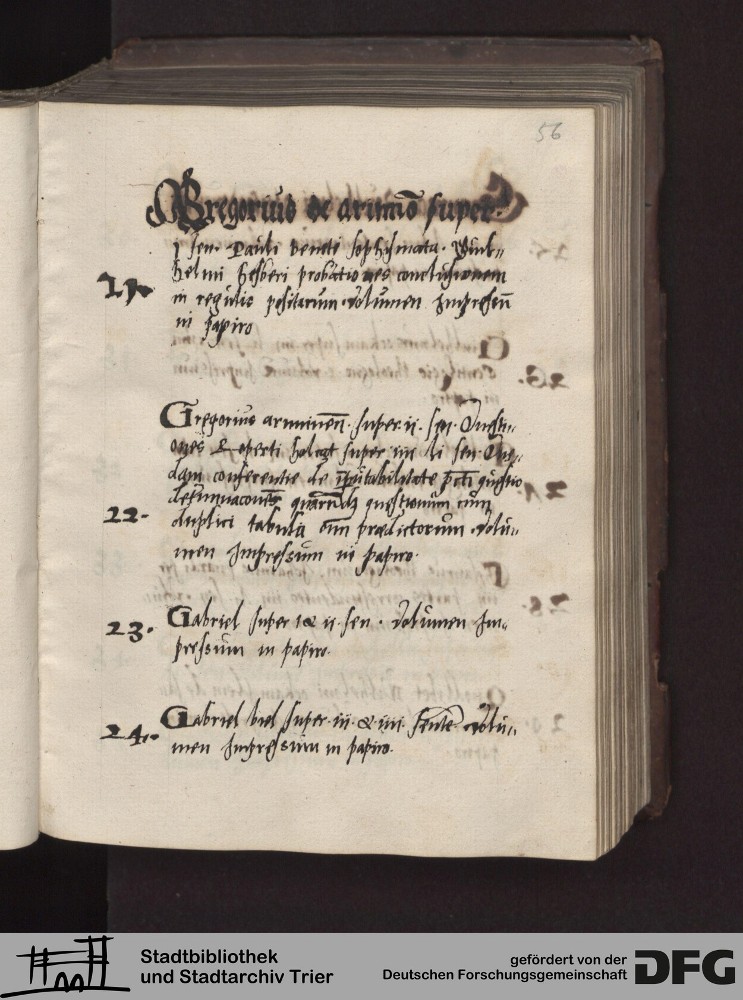 56
Gregorius de arimīo super
j sen. Pauli veneti sophismata. Guil-
helmi hesberi probationes conclusionum
21. in regulis positarum. Volumen Impressū
in papiro
Gregorius arminen̄. super. ii. sen. Questi-
ones Roperti holcot super iiii li sen. Que-
dam conferentie de īputabilitate pcti questio
determinacones quarūdā questionum cum
22. duplici tabula om̄ prædictorum. Volu-
men Impressum in papiro.
23. Gabriel super i & ii. sen. Volumen Im-
pressum in papiro.
24. Gabriel biel super. iii. & iiii. senten̄ Volu-
men Impressum in papiro.
Stadtbibliothek
und Stadtarchiv Trier
gefördert von der
Deutschen Forschungsgemeinschaft
DFG